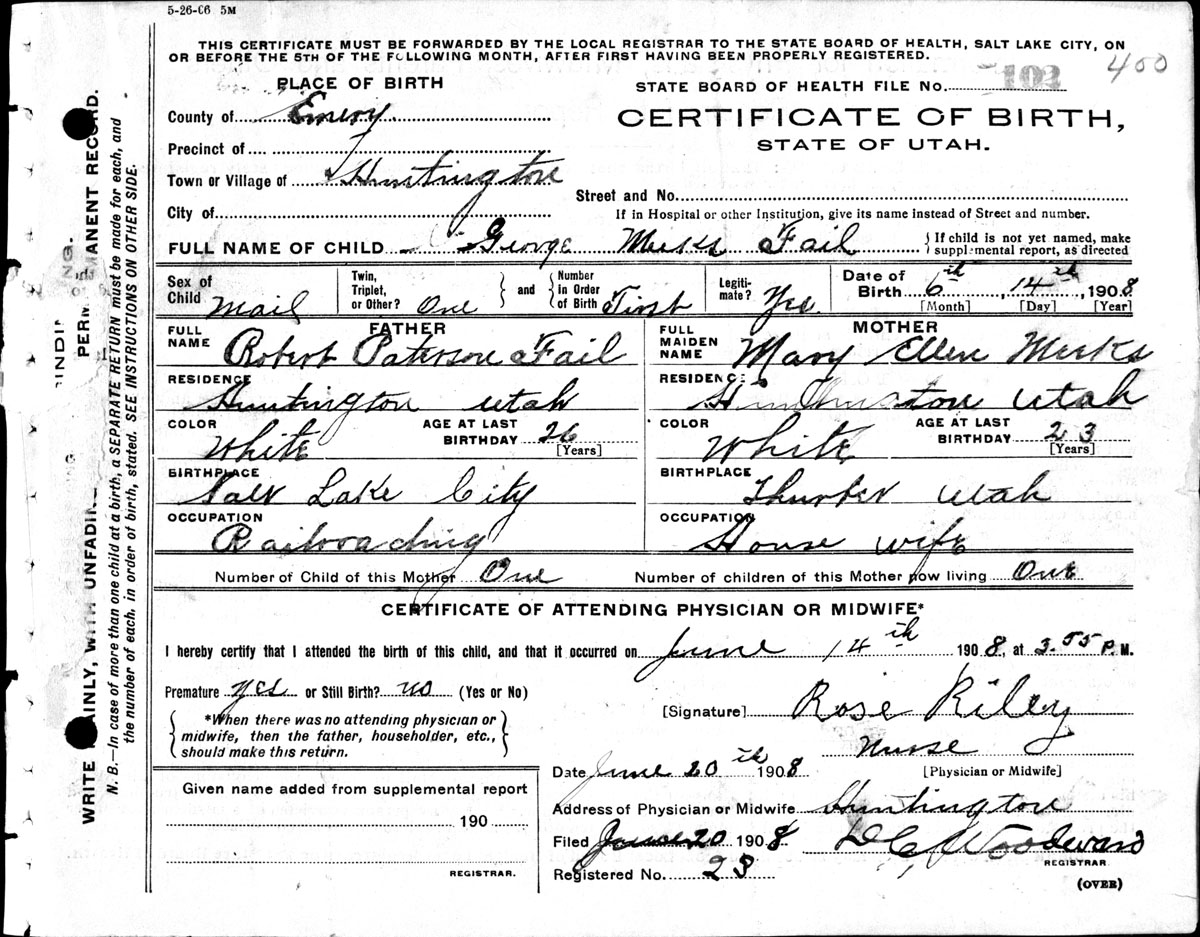 5-26-06 5M
THIS CERTIFICATE MUST BE FORWARDED BY THE LOCAL REGISTRAR TO THE STATE BOARD OF HEALTH, SALT LAKE CITY, ON
OR BEFORE THE 5TH OF THE FOLLOWING MONTH, AFTER FIRST HAVING BEEN PROPERLY REGISTERED.
400
PLACE OF BIRTH
STATE BOARD OF HEALTH FILE No. 102
County of Emery
CERTIFICATE OF BIRTH,
STATE OF UTAH.
Precinct of
Town or Village of Huntington
Street and No.
City of
If in Hospital or other Institution, give its name instead of Street and number.
FULL NAME OF CHILD George Meeks Fail
{If child is not yet named, make
supplemental report, as directed
Sex of Child Mail
Twin, Triplet, or Other? One } and { Number in Order of Birth First
Legitimate? Yes
Date of Birth 6th, 14th, 1908
[Month] [Day] [Year]
FATHER
FULL NAME Robert Paterson Fail
RESIDENCE Huntington Utah
COLOR White AGE AT LAST BIRTHDAY 26 [Years]
BIRTHPLACE Salt Lake City
OCCUPATION Railroading
MOTHER
FULL MAIDEN NAME Mary Ellen Meeks
RESIDENCE Utah
COLOR White AGE AT LAST BIRTHDAY 23 [Years]
BIRTHPLACE Thurber Utah
OCCUPATION House wife
Number of Child of this Mother One Number of children of this Mother now living One
CERTIFICATE OF ATTENDING PHYSICIAN OR MIDWIFE*
I hereby certify that I attended the birth of this child, and that it occurred on June 14th 1908, at 3.55 P.M.
Premature yes or Still Birth? no (Yes or No)
{*When there was no attending physician or
midwife, then the father, householder, etc.,
should make this return.}
[Signature] Rose Riley
Nurse
Date June 20th 1908 [Physician or Midwife]
Given name added from supplemental report
190
REGISTRAR.
Address of Physician or Midwife Huntington
Filed June 20 1908 D C Woodward
REGISTRAR
Registered No. 23
(OVER)
WRITE PLAINLY, WITH UNFADING
PERMANENT RECORD.
N. B.—In case of more than one child at a birth, a SEPARATE RETURN must be made for each, and
the number of each, in order of birth, stated. SEE INSTRUCTIONS ON OTHER SIDE.